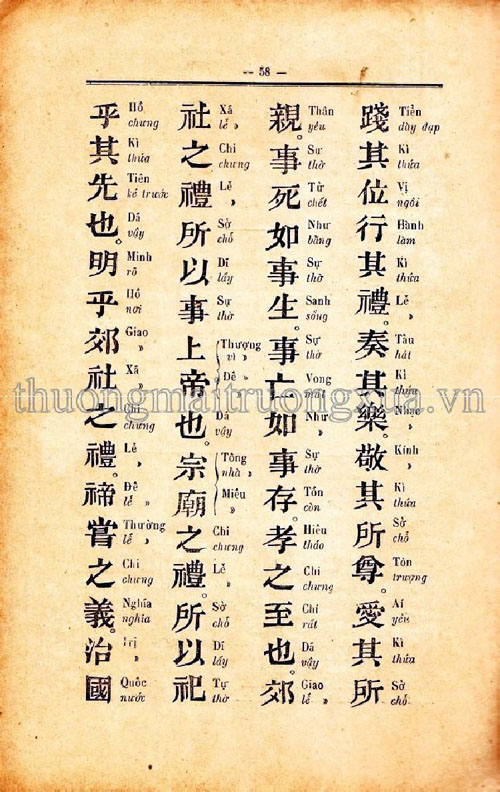 -- 58 --
踐其位行其禮。奏其樂。敬其所尊。愛其所
Tiền
dày đạp
Kì
thửa
Vị
ngôi
Hành
làm
Kì
thửa
Lễ »
Tấu
hát
Kì
thửa
Nhạc »
Kính »
Kì
thửa
Sở
chỗ
Tôn
trượng
Ái
yêu
Kì
thửa
Sở
chỗ
親。事死如事生。事亡如事存。孝之至也。郊
Thân
yêu
Sự
thờ
Tử
chết
Như
bằng
Sự
thờ
Sanh
sống
Sự
thờ
Vong
mất
Như »
Sự
thờ
Tồn
còn
Hiếu
thảo
Chi
chưng
Chí
rất
Dã
vậy
Giao
lễ »
社之禮所以事上帝也。宗廟之禮。所以祀
Xã
lễ »
Chi
chưng
Lễ »
Sở
chỗ
Dĩ
lấy
Sự
thờ
Thượng
vì »
Đế »
Dã
vậy
Tông
nhà »
Miếu »
Chi
chưng
Lễ »
Sở
chỗ
Dĩ
lấy
Tự
thờ
乎其先也。明乎郊社之禮。禘嘗之義。治國
Hồ
chưng
Kì
thửa
Tiên
kẻ trước
Dã
vậy
Minh
rõ
Hồ
nơi
Giao »
Xã »
Chi
chưng
Lễ »
Đế
lễ »
Thường
lễ »
Chi
chưng
Nghĩa
nghĩa
Trị »
Quốc
nước
thuongmaitruongxua.vn